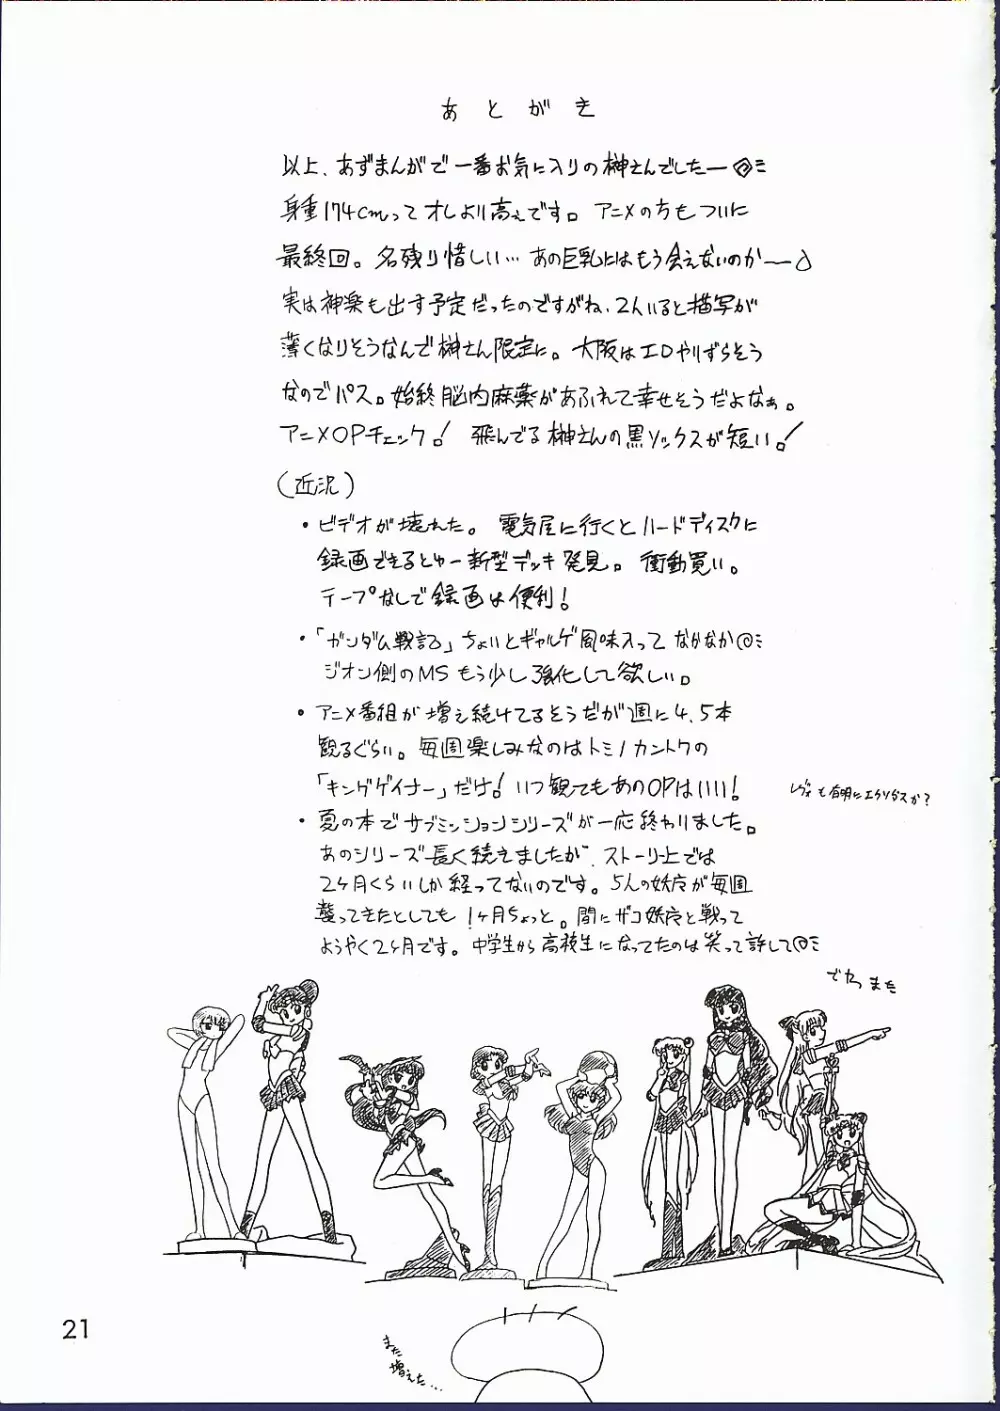 あとがき
以上、あずまんがで一番お気に入りの榊さんでしたー
身重174cmってオレより高ぇです。アニメの方もついに
最終回。名残り惜しい… あの巨乳にはもう会えないのかー
実は神楽も出す予定だったのですがね、2人いると描写が
薄くなりそうなんで榊さん限定に。大阪はエロやりずらそう
なのでパス。始終脳内麻薬があふれて幸せそうだよなぁ。
アニメOPチェック! 飛んでる榊さんの黒ソックスが短い!
(近況)
・ビデオが壊れた。電気屋に行くとハードディスクに
録画できるとゆー新型デッキ発見。衝動買い。
テープなしで録画は便利!
・「ガンダム戦記」ちょいとギャルゲ風味入ってなかなか
ジオン側のMSもう少し強化して欲しい。
・アニメ番組が増え続けてるそうだが週に4,5本
観るぐらい。毎週楽しみなのはトミノカントクの
「キングゲイナー」だけ! いつ観てもあのOPはいい!
も有明にエクソダスか?
・夏の本でサブミッションシリーズが一応終わりました。
あのシリーズ長く続えましたが、ストーリ上では
2ヶ月くらいしか経ってないのです。5人の妖が毎週
襲ってきたとしても1ヶ月ちょっと。間にザコ妖と戦って
ようやく2ヶ月です。中学生から高校生になってたのは笑って許して
でわっまた
また
増えた…
21